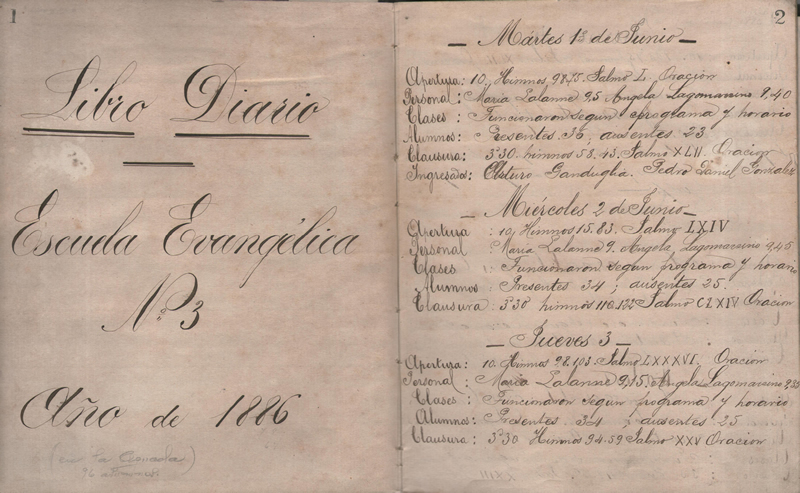 1
Libro Diario
Escuela Evangélica
Nº 3
Año de 1886
(en la
2
Martes 1º de Junio
Apertura: 10, Himnos, 98,75. Salmo L. Oracion
Personal: Maria Lalanne 9,5 Angela Lagomarsino 9,40
Clases: Funcionaron segun programa y horario
Alumnos: Presentes. 36, ausentes. 23
Clausura: 3º30. himnos 53. 43. Salmo XLII. Oracion
Ingresados: Arturo Ganduglia. Pedro Daniel Gonzalez
Miércoles 2 de Junio
Apertura : 10, Himnos 15.83. Salmo LXIV
Personal Maria Lalanne 9. Angela Lagomarsino 9,45
Clases : Funcionaron segun programa y horario
Alumnos : Presentes 34 ; ausentes 25.
Clausura : 3º30 himnos 116.122 Salmo CLXIV Oracion
Jueves 3
Apertura: 10. Himnos 98.103. Salmo LXXXVI. Oracion
Personal : Maria Lalanne 9,15. Angela Lagomarsino
Clases : Funcionaron segun programa y horario
Alumnos: Presentes 34 ; ausentes 25
Clausura: 3º30 Himnos 94.59 Salmo XXV Oracion